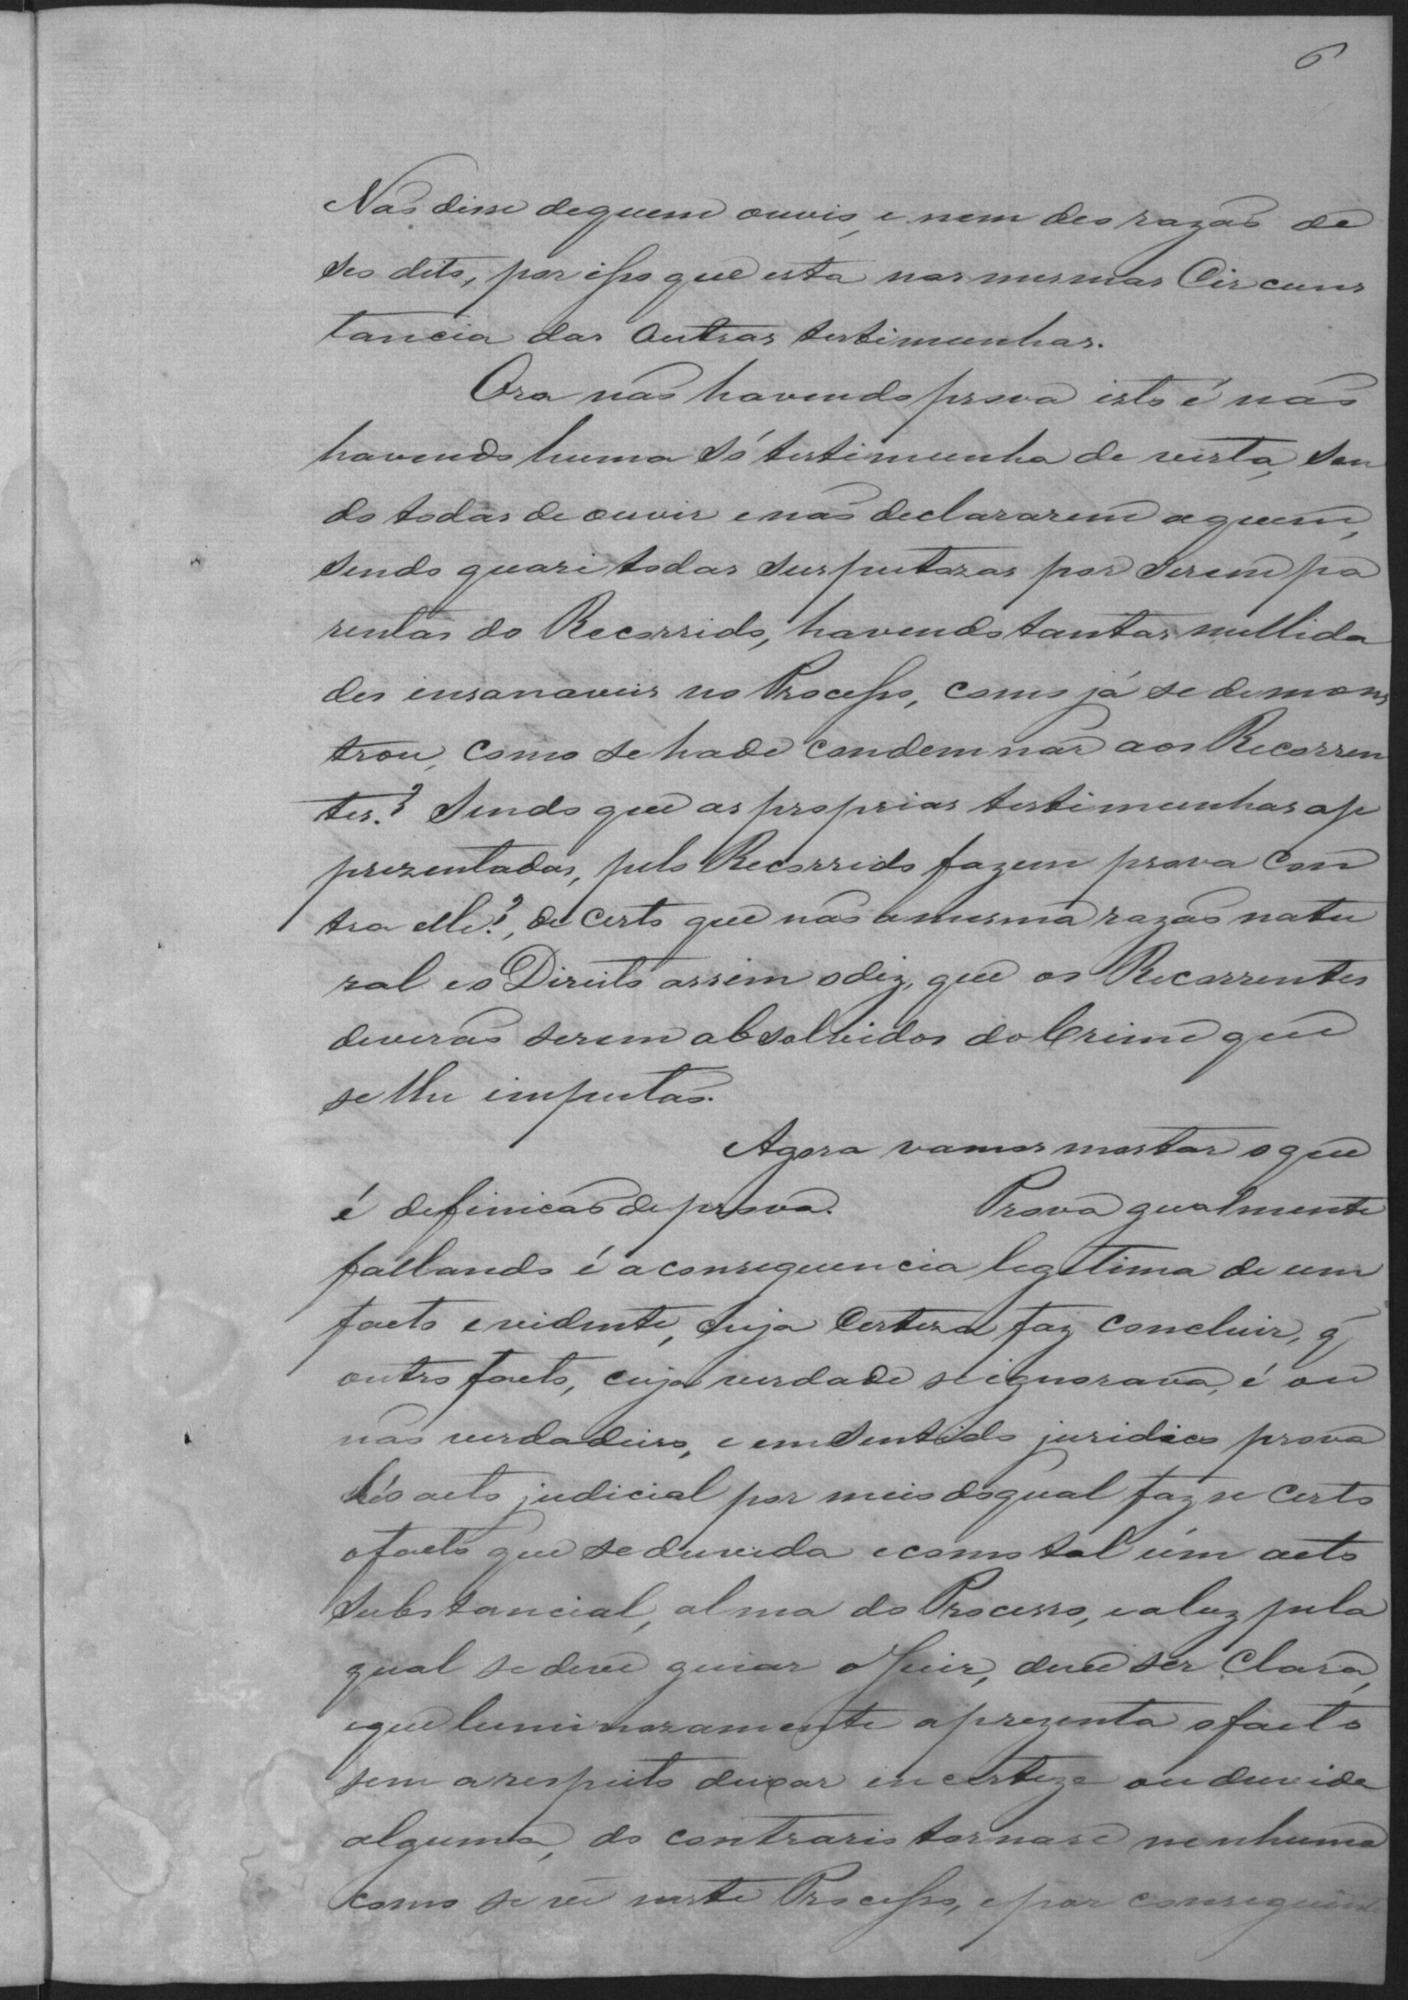 6
Não disse de quem ouvio, e nem deo razão de
seo dito, por isso que está nas mesmas Circuns
tancia das outras testimunhas.
Ora não havendo prova isto é não
havendo huma só testimunha de vista, sen
do todas de ouvir e não declararem a quem,
sendo quasi todas suspeitozas por serem pa
rentas do Recorrido, havendo tantas nullida
des insanaveis no Processo, como já se demons
trou, como se hade condemnar aos Recorren
tes.? Sendo que as proprias testimunhas ap
prezentadas, pelo Recorrido fazem prova con
tra elle?, de certo que não a mesma razão natu
ral e o Direito assim o diz, que os Recorrentes
deverão serem absolvidos do Crime que
se lhe imputão.
Agora vamos mostar o que
é definicão de prova. Prova gualmente
fallando é a consequencia legitima de um
facto evidente, cuja certeza faz concluir, q
outro facto, cuja verdade se ignorava, é ou
não verdadeiro, e em sentido juridico prova
hé o acto judicial por meio do qual faz se certo
o facto que se duvida e como tal é um acto
substancial, alma do Processo, e a luz pela
qual se deve guiar o Juiz, deve ser clara,
e que luminozamente aprezenta o facto
sem a respeito deixar incerteza ou duvida
alguma, do contrario torna se nenhuma
como se vê neste Processo, e por conseguinte